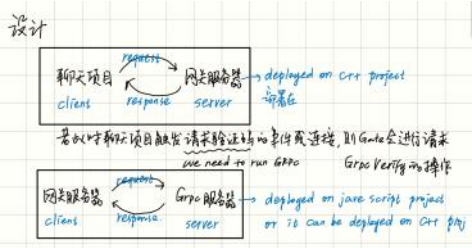 设计
request
聊天项目 网关服务器 → deployed on C++ project
client response server 部署在
若此时聊天项目触发请求验证码的事件或连接, 则Gate会进行请求
we need to run GRPC Grpc Verify的操作
request
网关服务器 Grpc服务器 → deployed on jave script project
client response server or it can be deployed on C++ proj